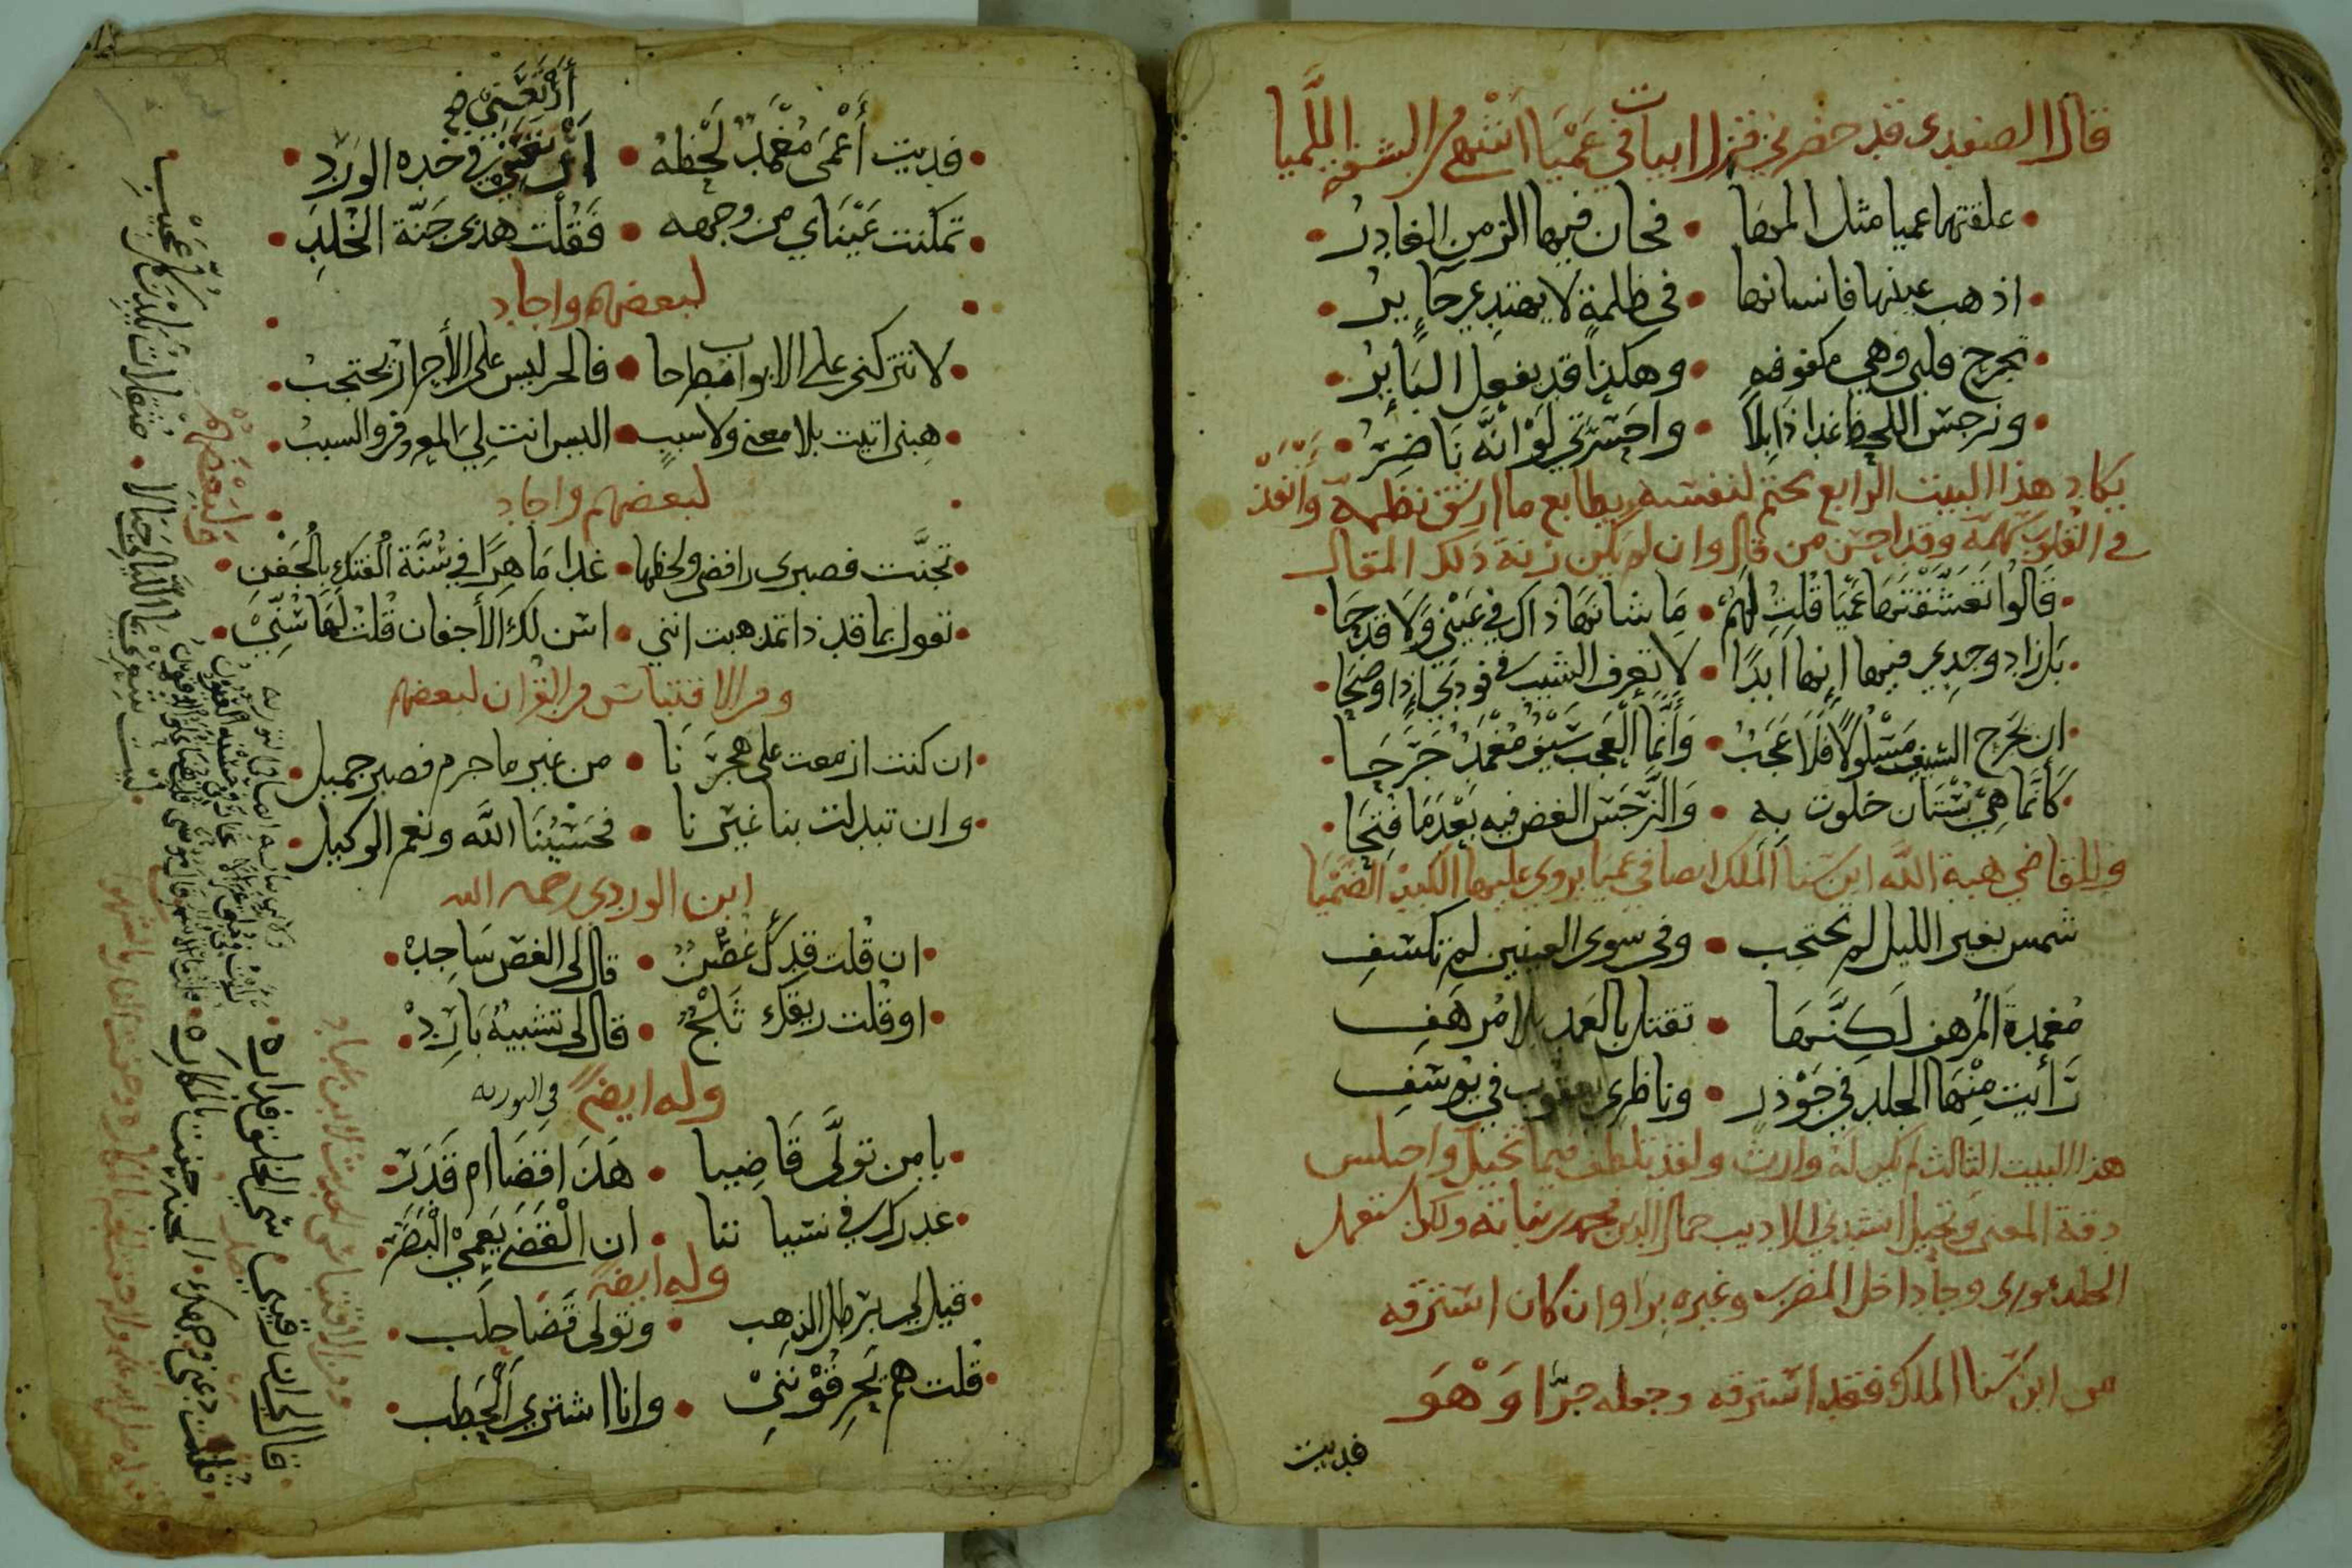 قال الصفدي قد حضرني فنزل ابيات في عميا اشهى من الشفة اللميا
علقتها عميا مثل المها • فحان فيها الزمن الغادر
اذهب عينها فانسانها • في ظلمة لا يهتدي حاير
تجرح قلبي وهي مكفوفه • وهكذا قد يفعل الباتر
ونرجس اللحظ غدا ذابلا • واحسرتي لو انه ناضر
يكاد هذا البيت الرابع يختم لنفسه بطابع ما ارشق نظمه وانفذ
في القلوب كلمه وقد احسن من قال وان لم يكن زنة ذلك المقال
قالوا تعشقتها عميا قلت لهم • ما شانها ذاك في عيني ولا قدحا
بل زاد وجدي فيها انها ابدا • لا تعرف الشيب في فودي اذا وضحا
ان يجرح السيف مسلولا فلا عجب • وانما العجب سيف مغمد جرحا
كانما هي بستان خلوت به • والنرجس الغض فيه بعد ما فتحا
وللقاضي هبة الله ابن سنا الملك ايضا في عميا يروي عليها الكبد الضميا
شمس بغير الليل لم تحتجب • وفي سوى العينين لم تكسف
مغمدة المرهف لكنها • تقتل بالغمد بلا مرهف
رأيت منها الخلد في جوذر • وناظري يعقوب في يوسف
هذا البيت الثالث لم يكن له وارث ولقد تلطف فيما تخيل واختلس
دقة المعنى وتخيل انشدني الاديب جمال الدين محمد بن نباته ولكن استعمل
الخلد توري وجا داخل المضرب وغيره برا وان كان استرقه
من ابن سنا الملك فقد استرقه وجعله جرا وهو
فديت
أرتعني صح
فديت أعمى مغمد لحظه • في خده الورد
تمكنت عيناي من وجهه • فقلت هذي جنة الخلد
لبعضهم واجاد
لا تتركني على الابواب مطرحا • فالحر ليس على الأحرار يحتجب
هبني اتيت بلا معنى ولا سبب • اليس انت لي المعروف والسبب
لبعضهم واجاد
تجنت فصبري رافضي ولحظها • غدا ماهرا في سنة الفتك بالجفن
تقول بما قد ذا تمذهبت انني • اسن لك الأجفان قلت لها سني
ومن الاقتباس من القران لبعضهم
ان كنت ازمعت على هجرنا • من غير ما جرم فصبر جميل
وان تبدلت بنا غيرنا • فحسبنا الله ونعم الوكيل
ابن الوردي رحمه الله
ان قلت قدك غصن • قال لي الغصن ساجد
او قلت ريقك ثلج • قال لي تشبيه بارد
وله ايضا في التوريه
يا من تولى قاضيا • هل ذا قضا ام قدر
غدرك في نسياننا • ان القضى يعمي البصر
وله ايضا
قيل لي برطل الذهب • وتولى قضا حلب
قلت هم يحرقونني • وانا اشتري الحطب
ومن الاقتباس من الحديث لابن عباد
قال لي ان رقيبي سيئ الخلق فداره
قلت دعني وجهك الجنة حفت بالمكاره